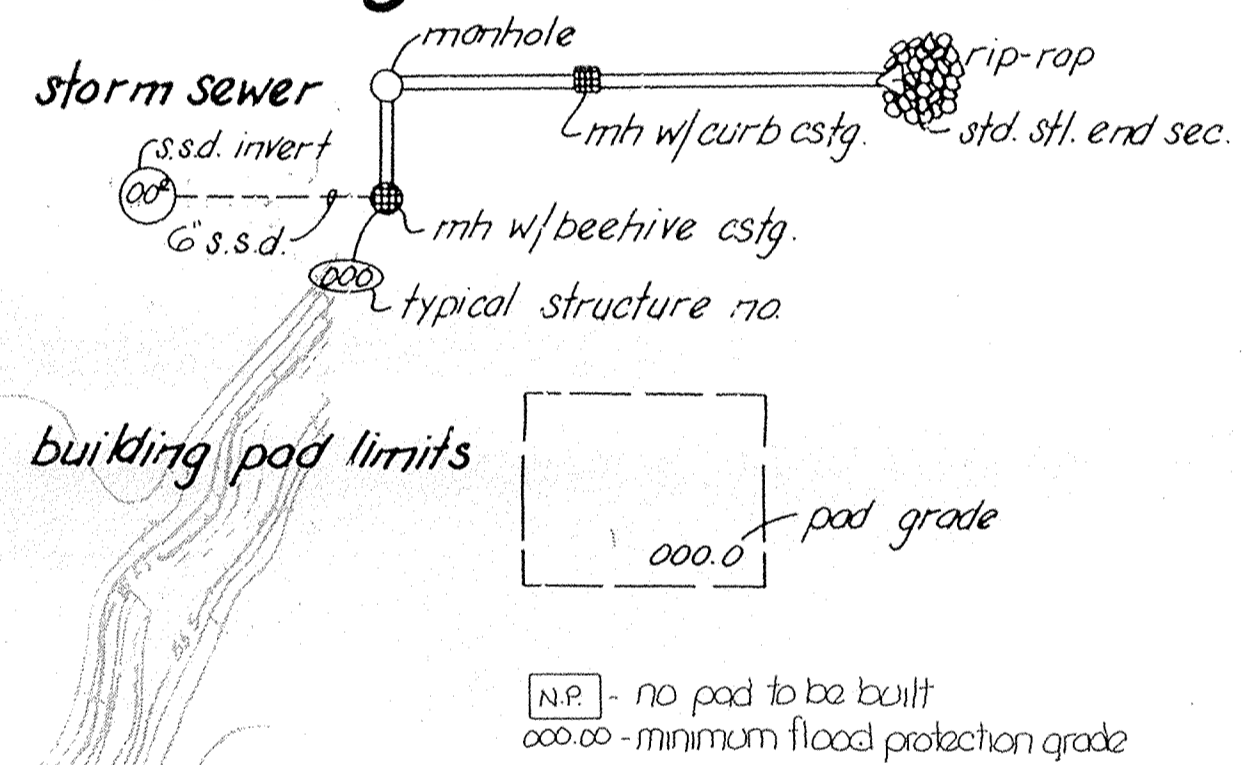 manhole
storm sewer
rip-rap
mh w/curb cstg.
std. stl. end sec.
s.s.d. invert
6" s.s.d.
mh w/beehive cstg.
000
typical structure no.
building pad limits
pad grade
000.0
N.P. - no pad to be built
000.00 - minimum flood protection grade